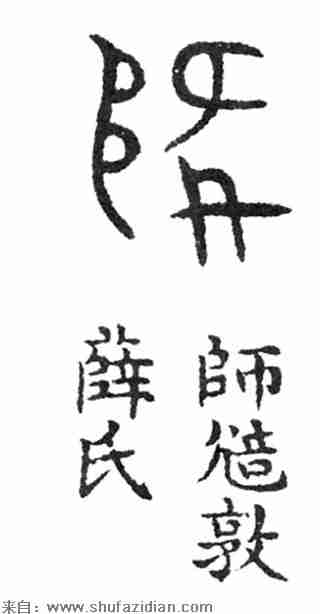 師敦
薛氏
来自：www.shufazidian.com